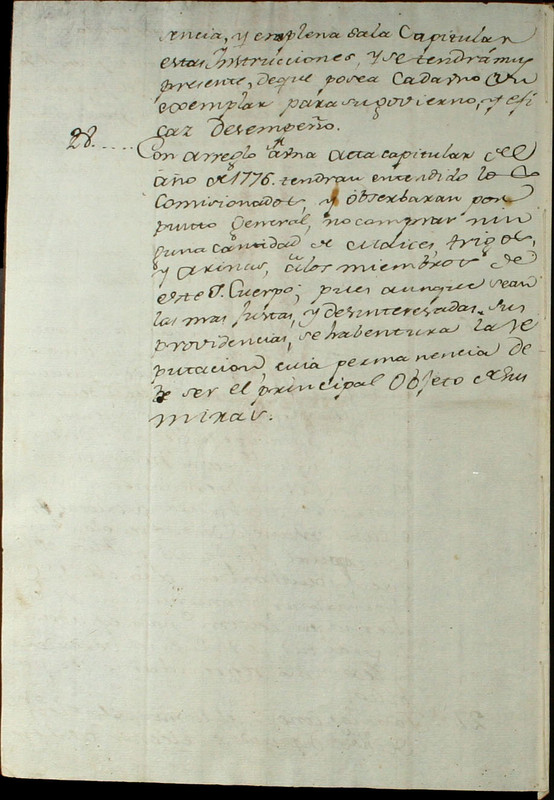 sencia, y en plena Sala Capitular
estas Instrucciones, y se tendrá muy
presente, de que posea Cada uno un
exemplar para su govierno, y efi
caz desempeño.
28..... Con arreglo á una Acta capitular del
año de 1776. tendran entendido los
Comisionados, y obserbaran por
punto General, no comprar nin
guna cantidad de Maices, trigos,
y Arinas, á los miembros de
este Y. Cuerpo; pues aunque sean
las mas justas, y desinteresadas sus
providencias, se habentura la re
putacion cuia permanencia de
be ser el principal Objeto de sus
miras.